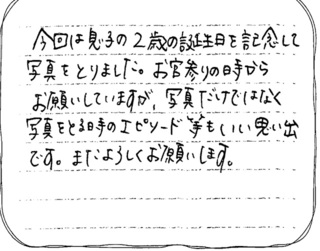 今回は息子の2歳の誕生日を記念して
写真をとりました。お宮参りの時から
お願いしていますが、写真だけではなく
写真をとる時のエピソード等もいい思い出
です。またよろしくお願いします。